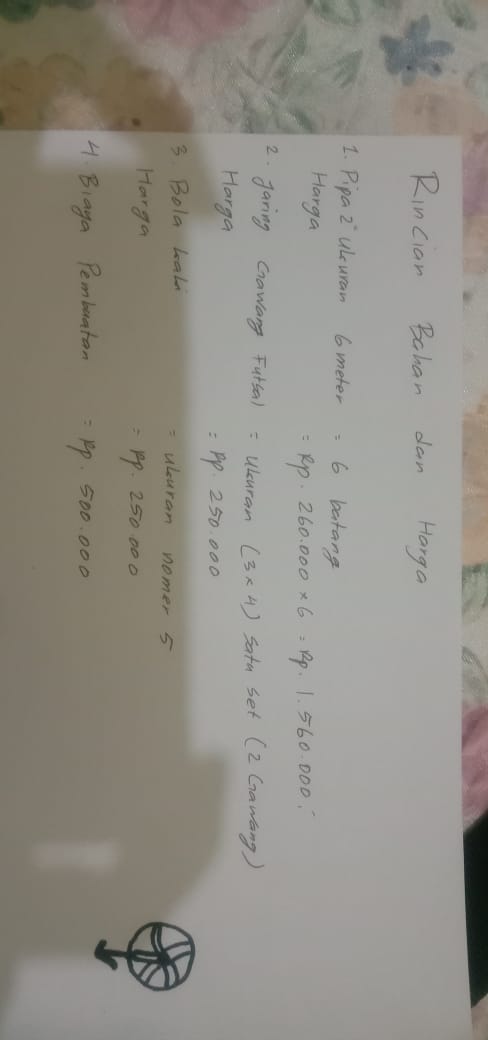 Rincian Bahan dan Harga
1. Pipa 2" Ukuran 6 meter = 6 batang
Harga = Rp. 260.000 × 6 = Rp. 1.560.000;
2. Jaring Gawang Futsal = Ukuran (3 × 4) Satu Set (2 Gawang)
Harga = Rp. 250.000
3. Bola kaki = ukuran nomer 5
Harga = Rp. 250.000
4. Biaya Pembuatan = Rp. 500.000